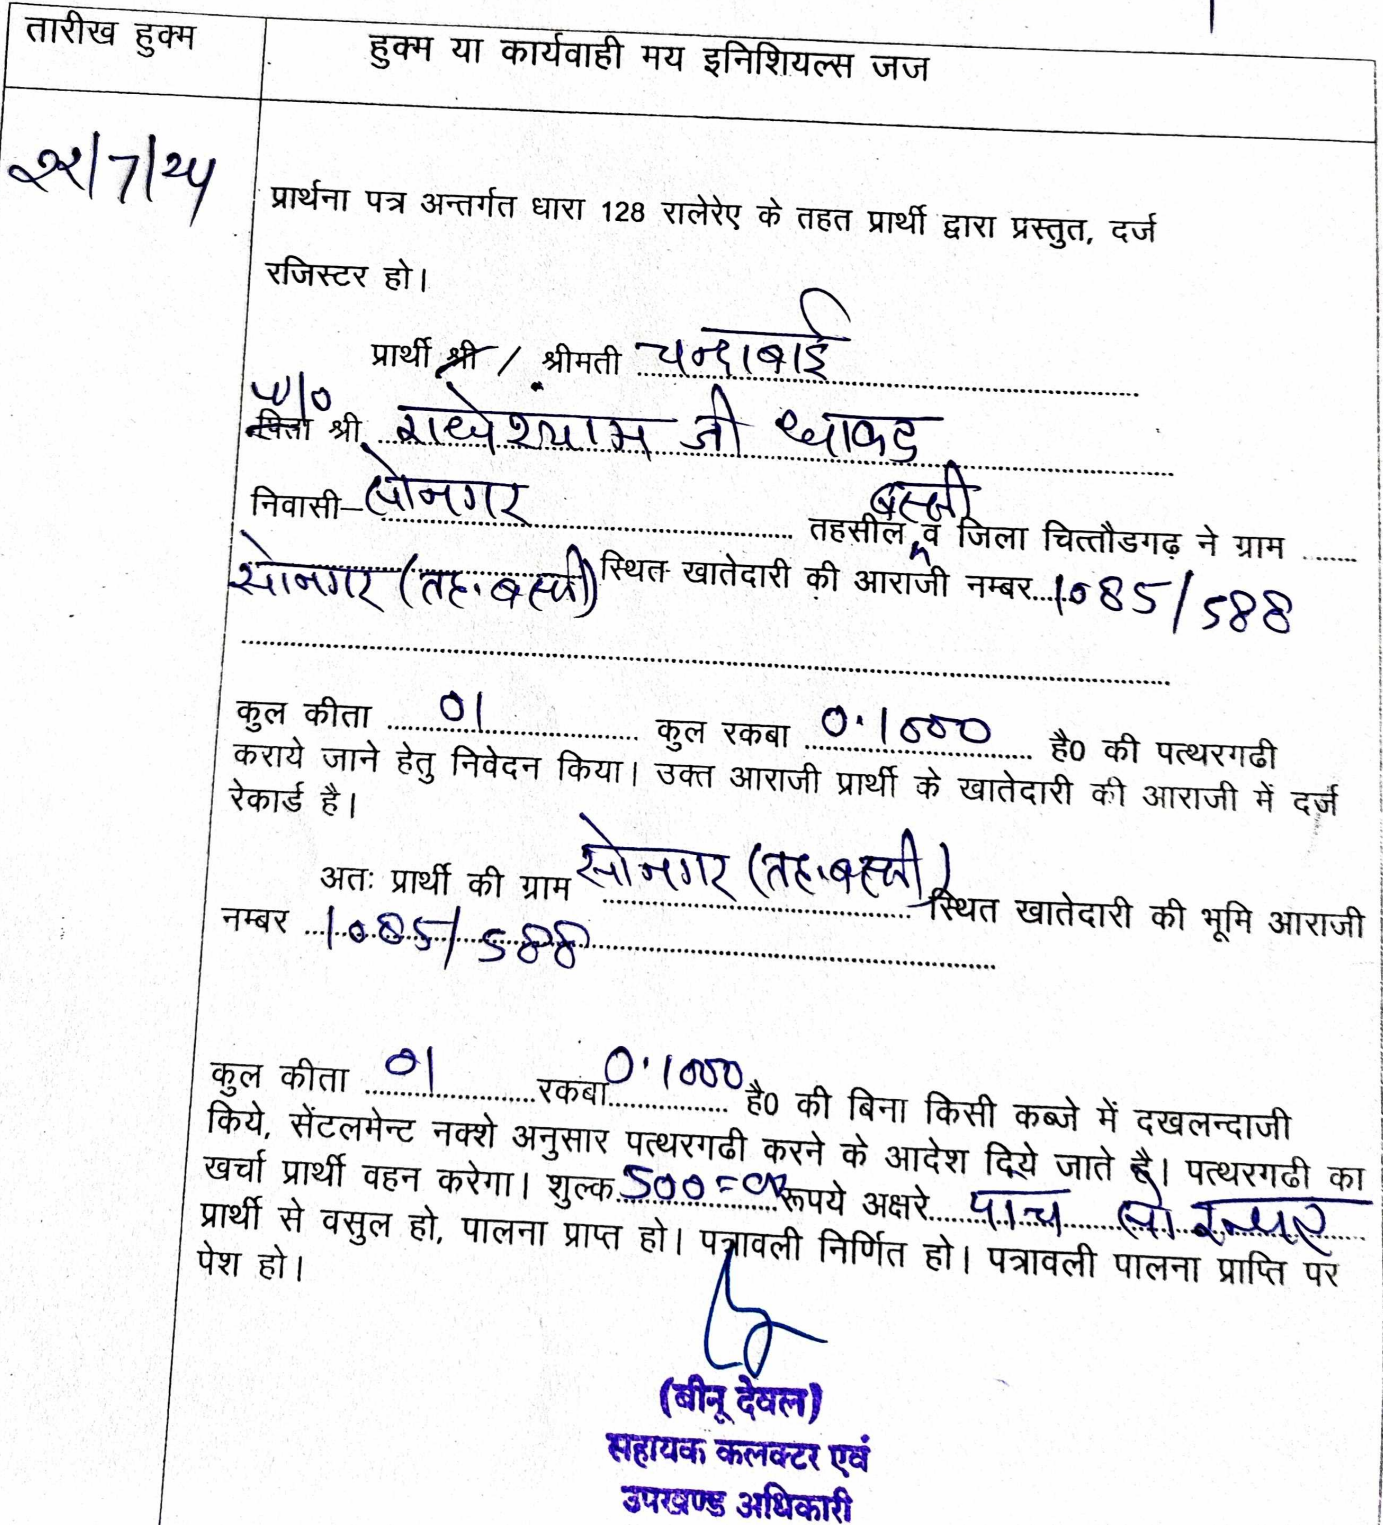 तारीख हुक्म
हुक्म या कार्यवाही मय इनिशियल्स जज
22/7/24
प्रार्थना पत्र अन्तर्गत धारा 128 रालेरेए के तहत प्रार्थी द्वारा प्रस्तुत, दर्ज
रजिस्टर हो।
प्रार्थी श्री / श्रीमती चन्दाबाई
W/o
पिता श्री राधेश्याम जी धाकड
निवासी– सोनगर तहसील बस्सी व जिला चित्तौडगढ़ ने ग्राम
सोनगर (तह. बस्सी) स्थित खातेदारी की आराजी नम्बर 1085/588
कुल कीता 01 कुल रकबा 0.1000 है0 की पत्थरगढी
कराये जाने हेतु निवेदन किया। उक्त आराजी प्रार्थी के खातेदारी की आराजी में दर्ज
रेकार्ड है।
अतः प्रार्थी की ग्राम सोनगर (तह. बस्सी) स्थित खातेदारी की भूमि आराजी
नम्बर 1085/588
कुल कीता 01 रकबा 0.1000 है0 की बिना किसी कब्जे में दखलन्दाजी
किये, सेंटलमेन्ट नक्शे अनुसार पत्थरगढी करने के आदेश दिये जाते है। पत्थरगढी का
खर्चा प्रार्थी वहन करेगा। शुल्क 500= रूपये अक्षरे पाच सो रूपए
प्रार्थी से वसुल हो, पालना प्राप्त हो। पत्रावली निर्णित हो। पत्रावली पालना प्राप्ति पर
पेश हो।
(बीनू देवल)
सहायक कलक्टर एवं
उपखण्ड अधिकारी